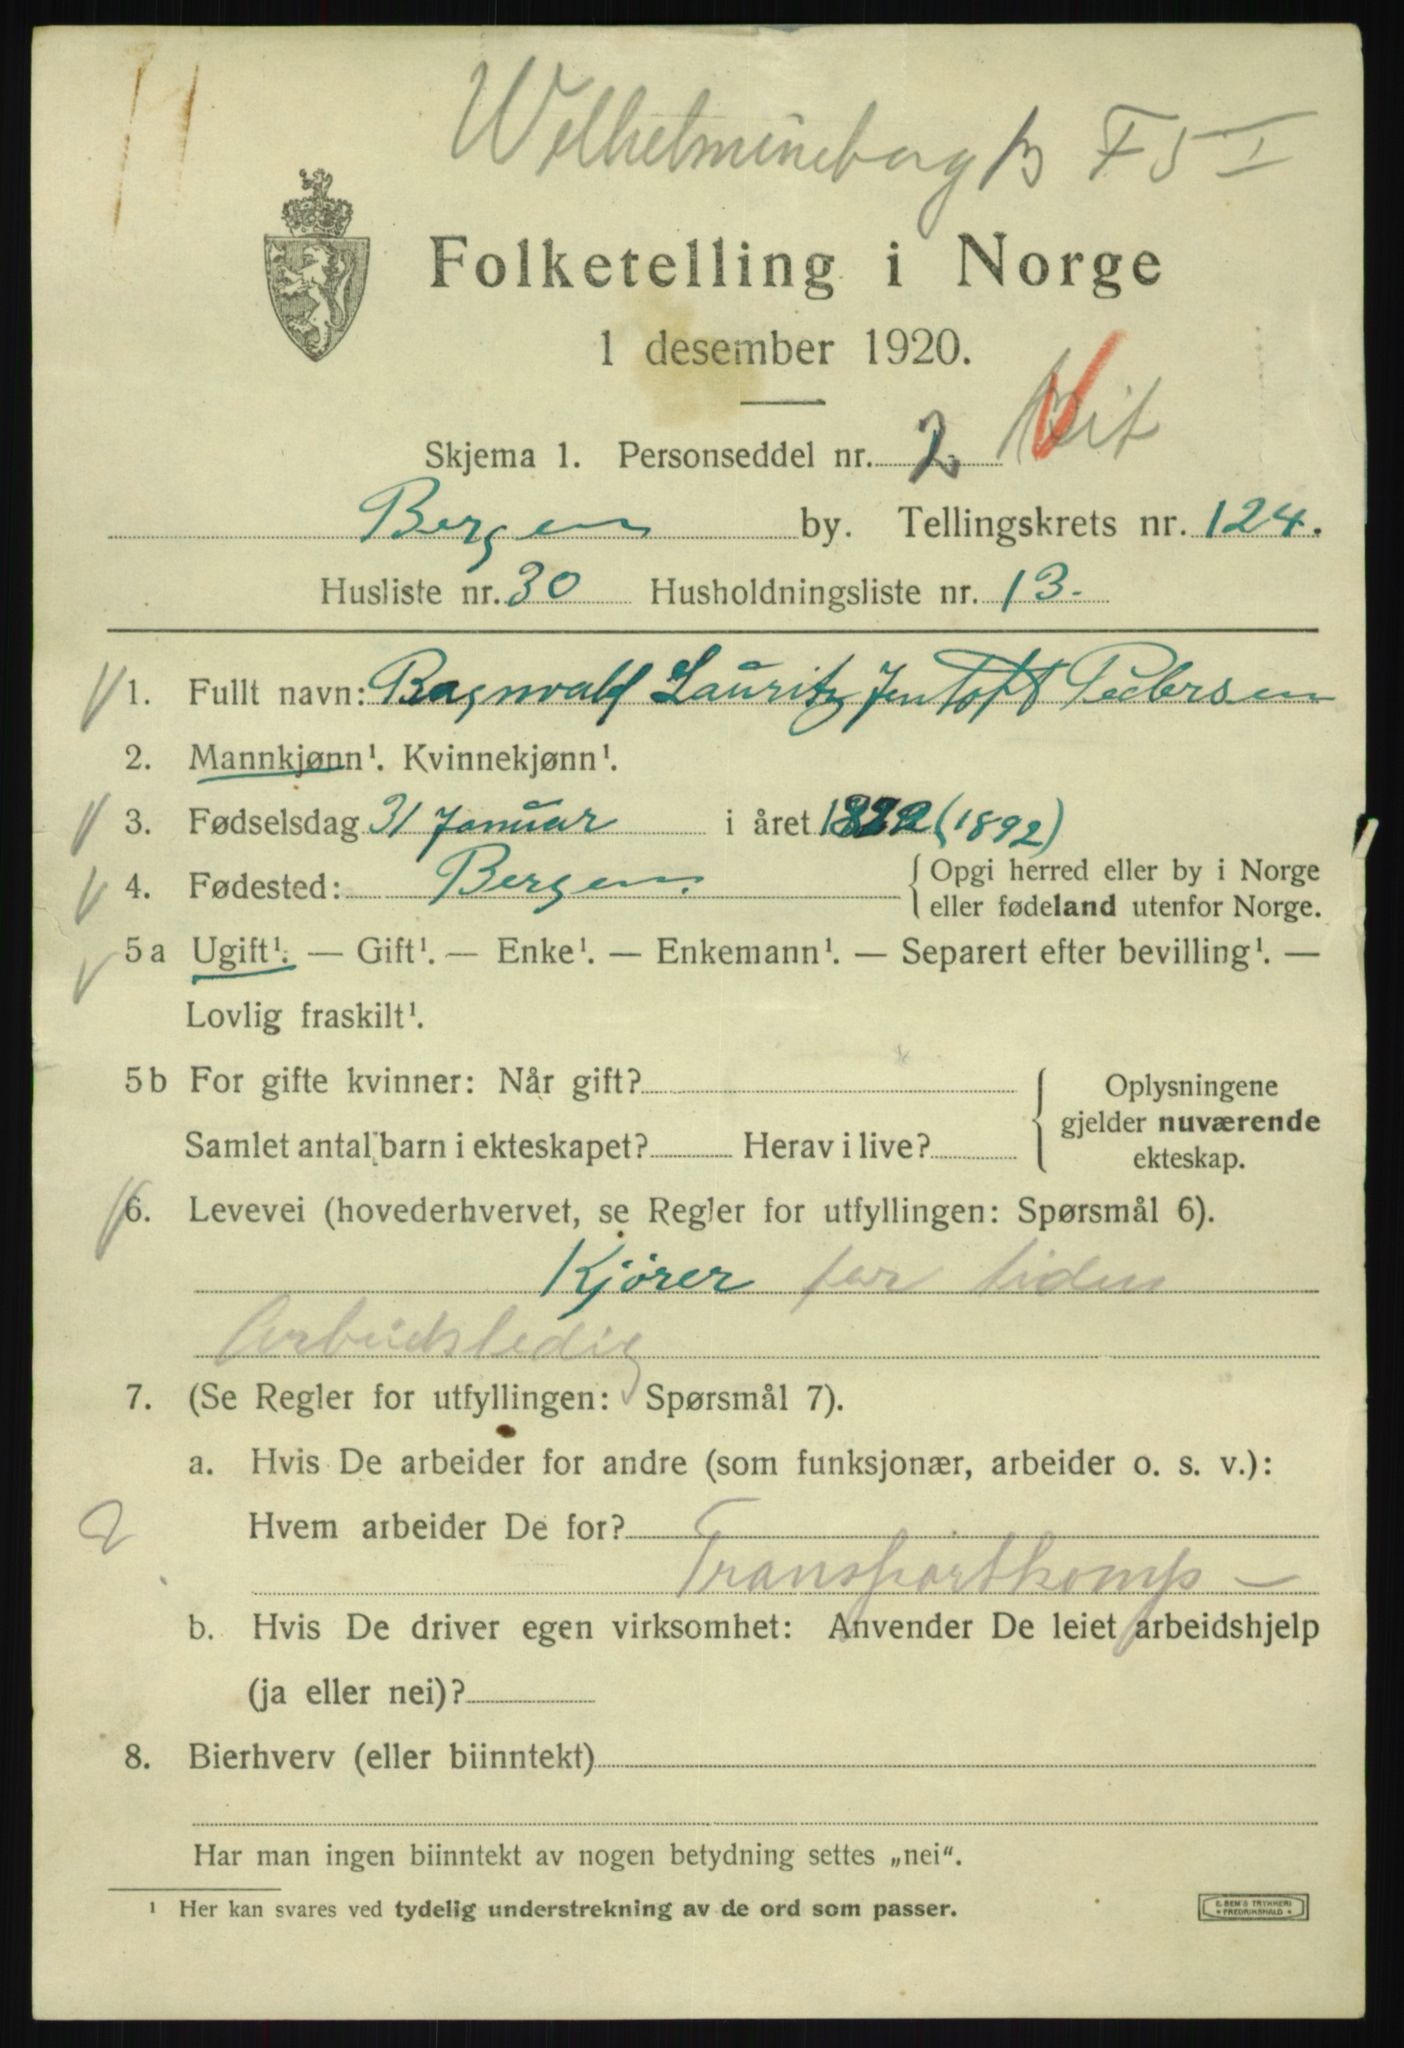 Welhelmineborg 13 F 5 I
Folketelling i Norge
1 desember 1920.
Skjema 1. Personseddel nr. 2
Bergen by. Tellingskrets nr. 124.
Husliste nr. 30 Husholdningsliste nr. 13.
1. Fullt navn: Ragnvald Lauritz Jentoft Pedersen
2. Mannkjønn¹. Kvinnekjønn¹.
3. Fødselsdag 31 Januar i året 1892 (1892)
4. Fødested: Bergen. { Opgi herred eller by i Norge
eller fødeland utenfor Norge.
5 a Ugift¹. — Gift¹. — Enke¹. — Enkemann¹. — Separert efter bevilling¹. —
Lovlig fraskilt¹.
5 b For gifte kvinner: Når gift? { Oplysningene
gjelder nuværende
Samlet antal barn i ekteskapet? Herav i live? ekteskap.
6. Levevei (hovederhvervet, se Regler for utfyllingen: Spørsmål 6).
Kjörer for tiden
Arbeidsledig
7. (Se Regler for utfyllingen: Spørsmål 7).
a. Hvis De arbeider for andre (som funksjonær, arbeider o. s. v.):
2 Hvem arbeider De for?
Transportkomp —
b. Hvis De driver egen virksomhet: Anvender De leiet arbeidshjelp
(ja eller nei)?
8. Bierhverv (eller biinntekt)
Har man ingen biinntekt av nogen betydning settes „nei“.
¹ Her kan svares ved tydelig understrekning av de ord som passer.
E. SEM'S TRYKKERI
* FREDRIKSHALD *